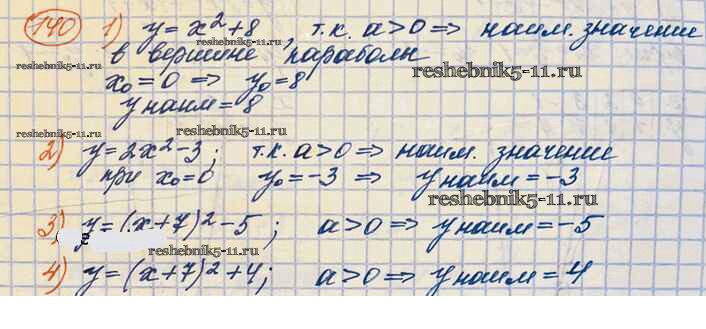 140 1) y = x² + 8, т.к. a > 0 => наим. значение
в вершине параболы
reshebnik5-11.ru
x₀ = 0 => y₀ = 8
y наим = 8
reshebnik5-11.ru
reshebnik5-11.ru
2) y = 2x² - 3; т.к. a > 0 => наим. значение
при x₀ = 0 y₀ = -3 => y наим = -3
reshebnik5-11.ru
3) y = (x + 7)² - 5; a > 0 => y наим = -5
reshebnik5-11.ru
4) y = (x + 7)² + 4; a > 0 => y наим = 4